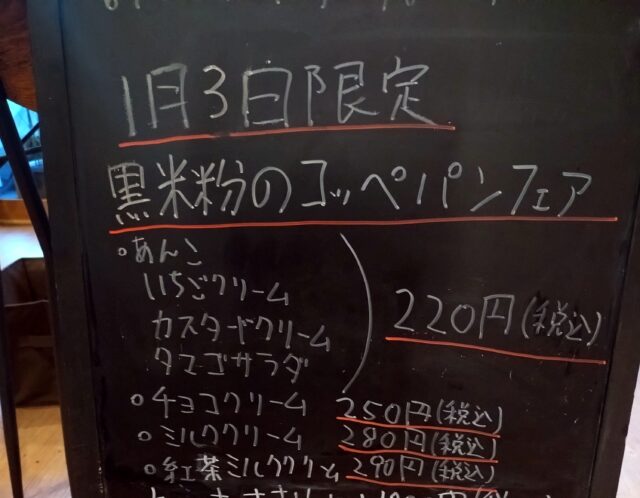 1月3日限定
黒米粉のコッペパンフェア
○あんこ
いちごクリーム
カスタードクリーム
タマゴサラダ
220円(税込)
○チョコクリーム 250円(税込)
○ミルククリーム 280円(税込)
○紅茶ミルククリム 290円(税込)